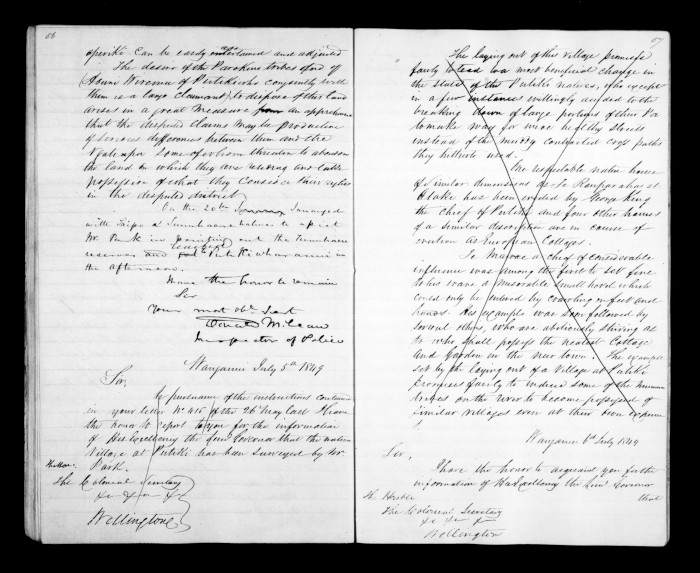 56
can be easily and adjusted
The desire of the tribes and of
of Putiki who conjointly with
them is a large claimant, to dispose of this land
arises in a great measure from an apprehension
that the disputed claims may be productive
of serious differences between them and the
some of whom threaten to
the land on which they are residing and take
possession of what they consider their rights
in the disputed district.
On the 20th I arranged
with & to
Mr Park in pointing out the
reserves and Putiki in
the afternoon.
I have the honor to remain
Sir
Your most obt Servt
Donald McLean
Inspector of Police
Wanganui July 5th 1849
Sir,
In pursuance of the instructions contained
in your letter No 415 of the 26 May last I have
the honor to report to you for the information
of His Excellency the Lieut Governor that the native
Village at Putiki has been surveyed by Mr
Park.
The Colonial Secretary
Wellington
57
The laying out of this village promises
fairly to lead to a most beneficial change in
the state of the Putiki natives, who except
in a few instances willingly acceded to the
breaking down of large portions of their Pa
to make way for more healthy streets
instead of the muddy contracted paths
they hitherto used.
One respectable native house
of similar dimensions to at
has been erected by George King
the chief of Putiki and four other houses
of a similar description are in course of
erection as European Cottages.
a chief of considerable
influence was among the first to set fire
to his a miserable small hovel which
could only be entered by crawling on feet and
hands. His example was soon followed by
several others, who are striving as
to who shall possess the neatest Cottage
and Garden in the new town. The example
set by the laying out of a Village at Putiki
promises fairly to induce some of the
tribes on the river to become possessed of
similar villages even at their own expense
Wanganui 6th July 1849
Sir,
I have the honor to acquaint you for the
information of His Excellency the Lieut Governor
that
The Colonial Secretary
Wellington